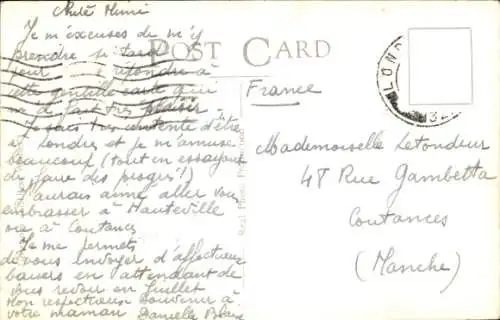 Chité Mimi
Je m'excuses de m'y
prendre si tard
pour répondre à
cette gentille carte qui
me fait très plaisir.
Je suis très contente d'être
à Londres et je m'amuse
beaucoup (tout en essayant
de faire des progrès!)
J'aurais aimé aller vous
embrasser à Hauteville
ou à Coutances
Je me permets
de vous envoyer d'affectueux
baisers en attendant de
vous revoir en Juillet
Mon respectueux souvenir à
votre maman Danielle
POST CARD
France
Mademoiselle Letondeur
48 Rue Gambetta
Coutances
(Manche)
LOND